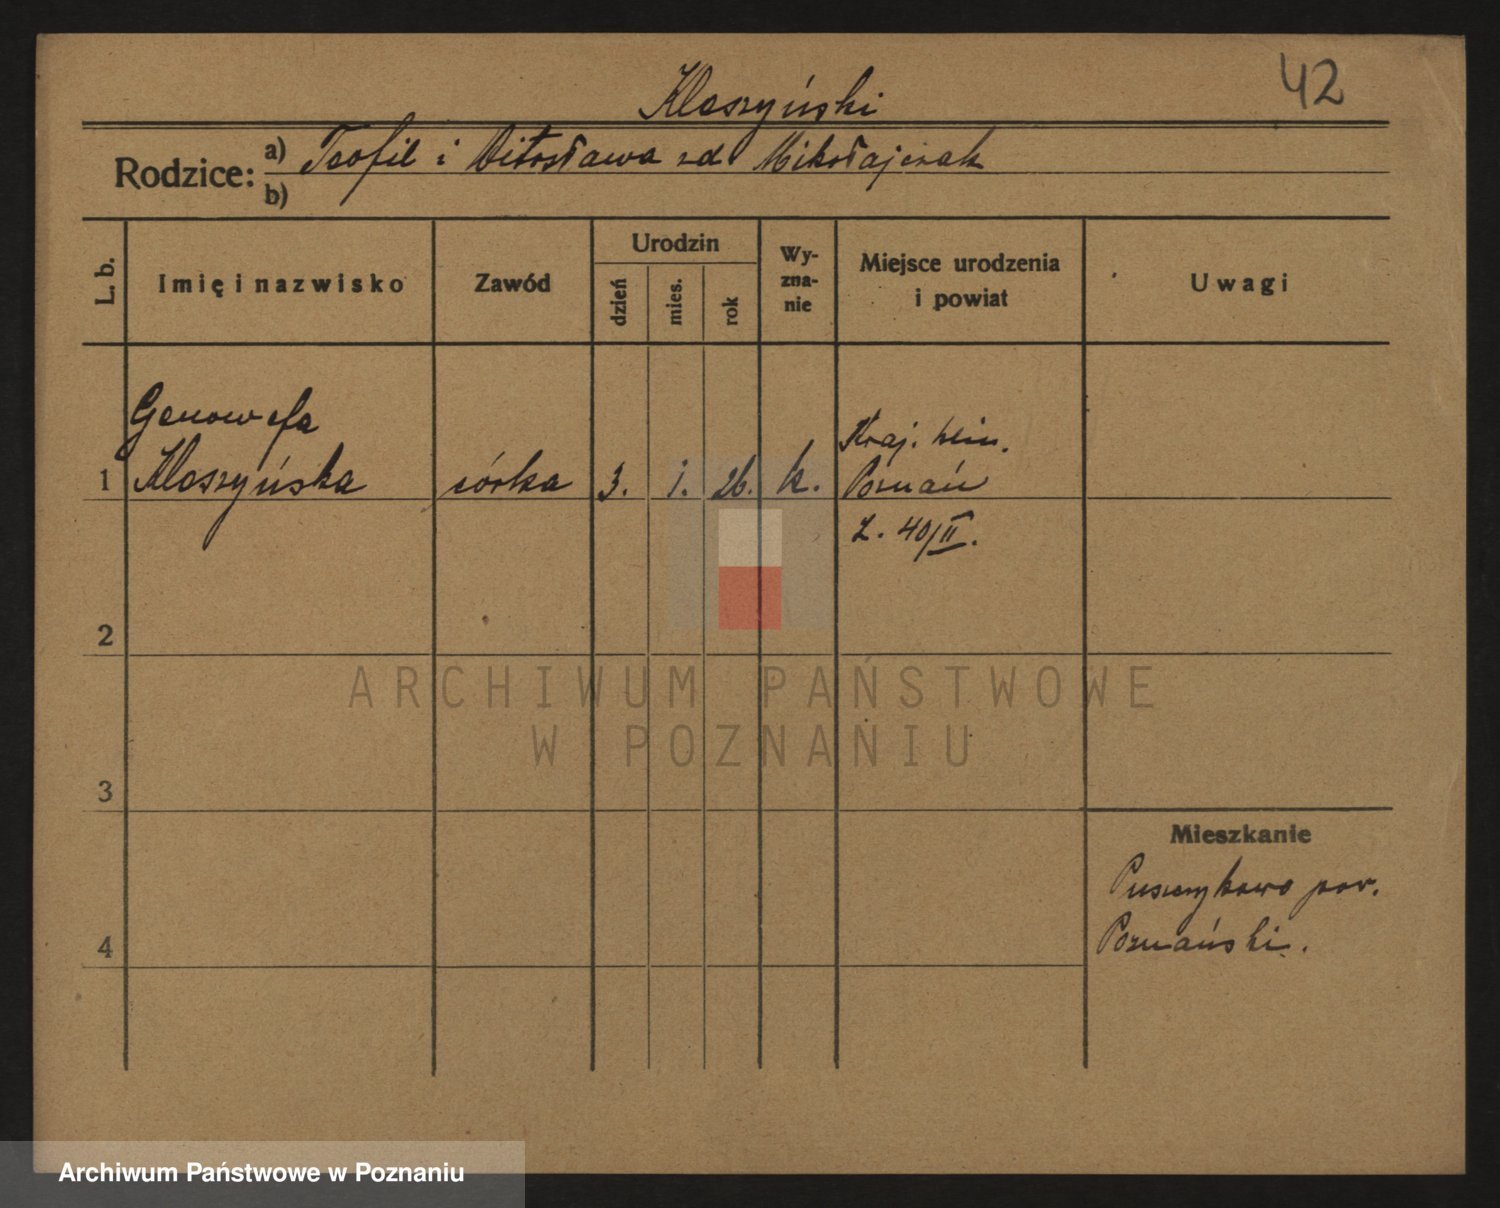 42
Kleszyński
Rodzice: a) Teofil i Witosława zd Mikołajczak
b)
L. b. Imię i nazwisko Zawód Urodzin dzień mies. rok Wy-zna-nie Miejsce urodzenia i powiat Uwagi
Genowefa
1 Kleszyńska córka 3. 1. 26. k.
Kraj. klin.
Poznań
L. 40/II.
2
ARCHIWUM PAŃSTWOWE
W POZNANIU
3
Mieszkanie
Puszczykowo pow.
4 Poznański.
Archiwum Państwowe w Poznaniu